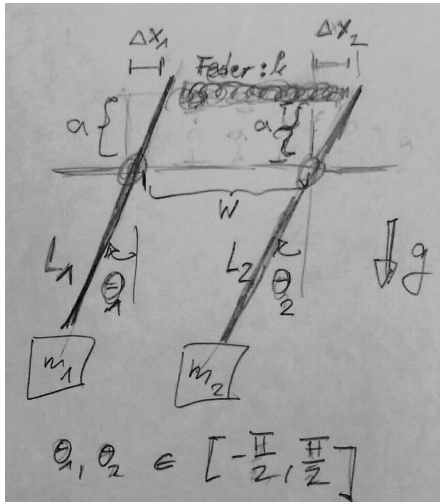 Δx₁ Δx₂
Feder: k
a a
W
L₁ θ₁ L₂ θ₂ g
m₁ m₂
θ₁, θ₂ ∈ [-π/2, π/2]